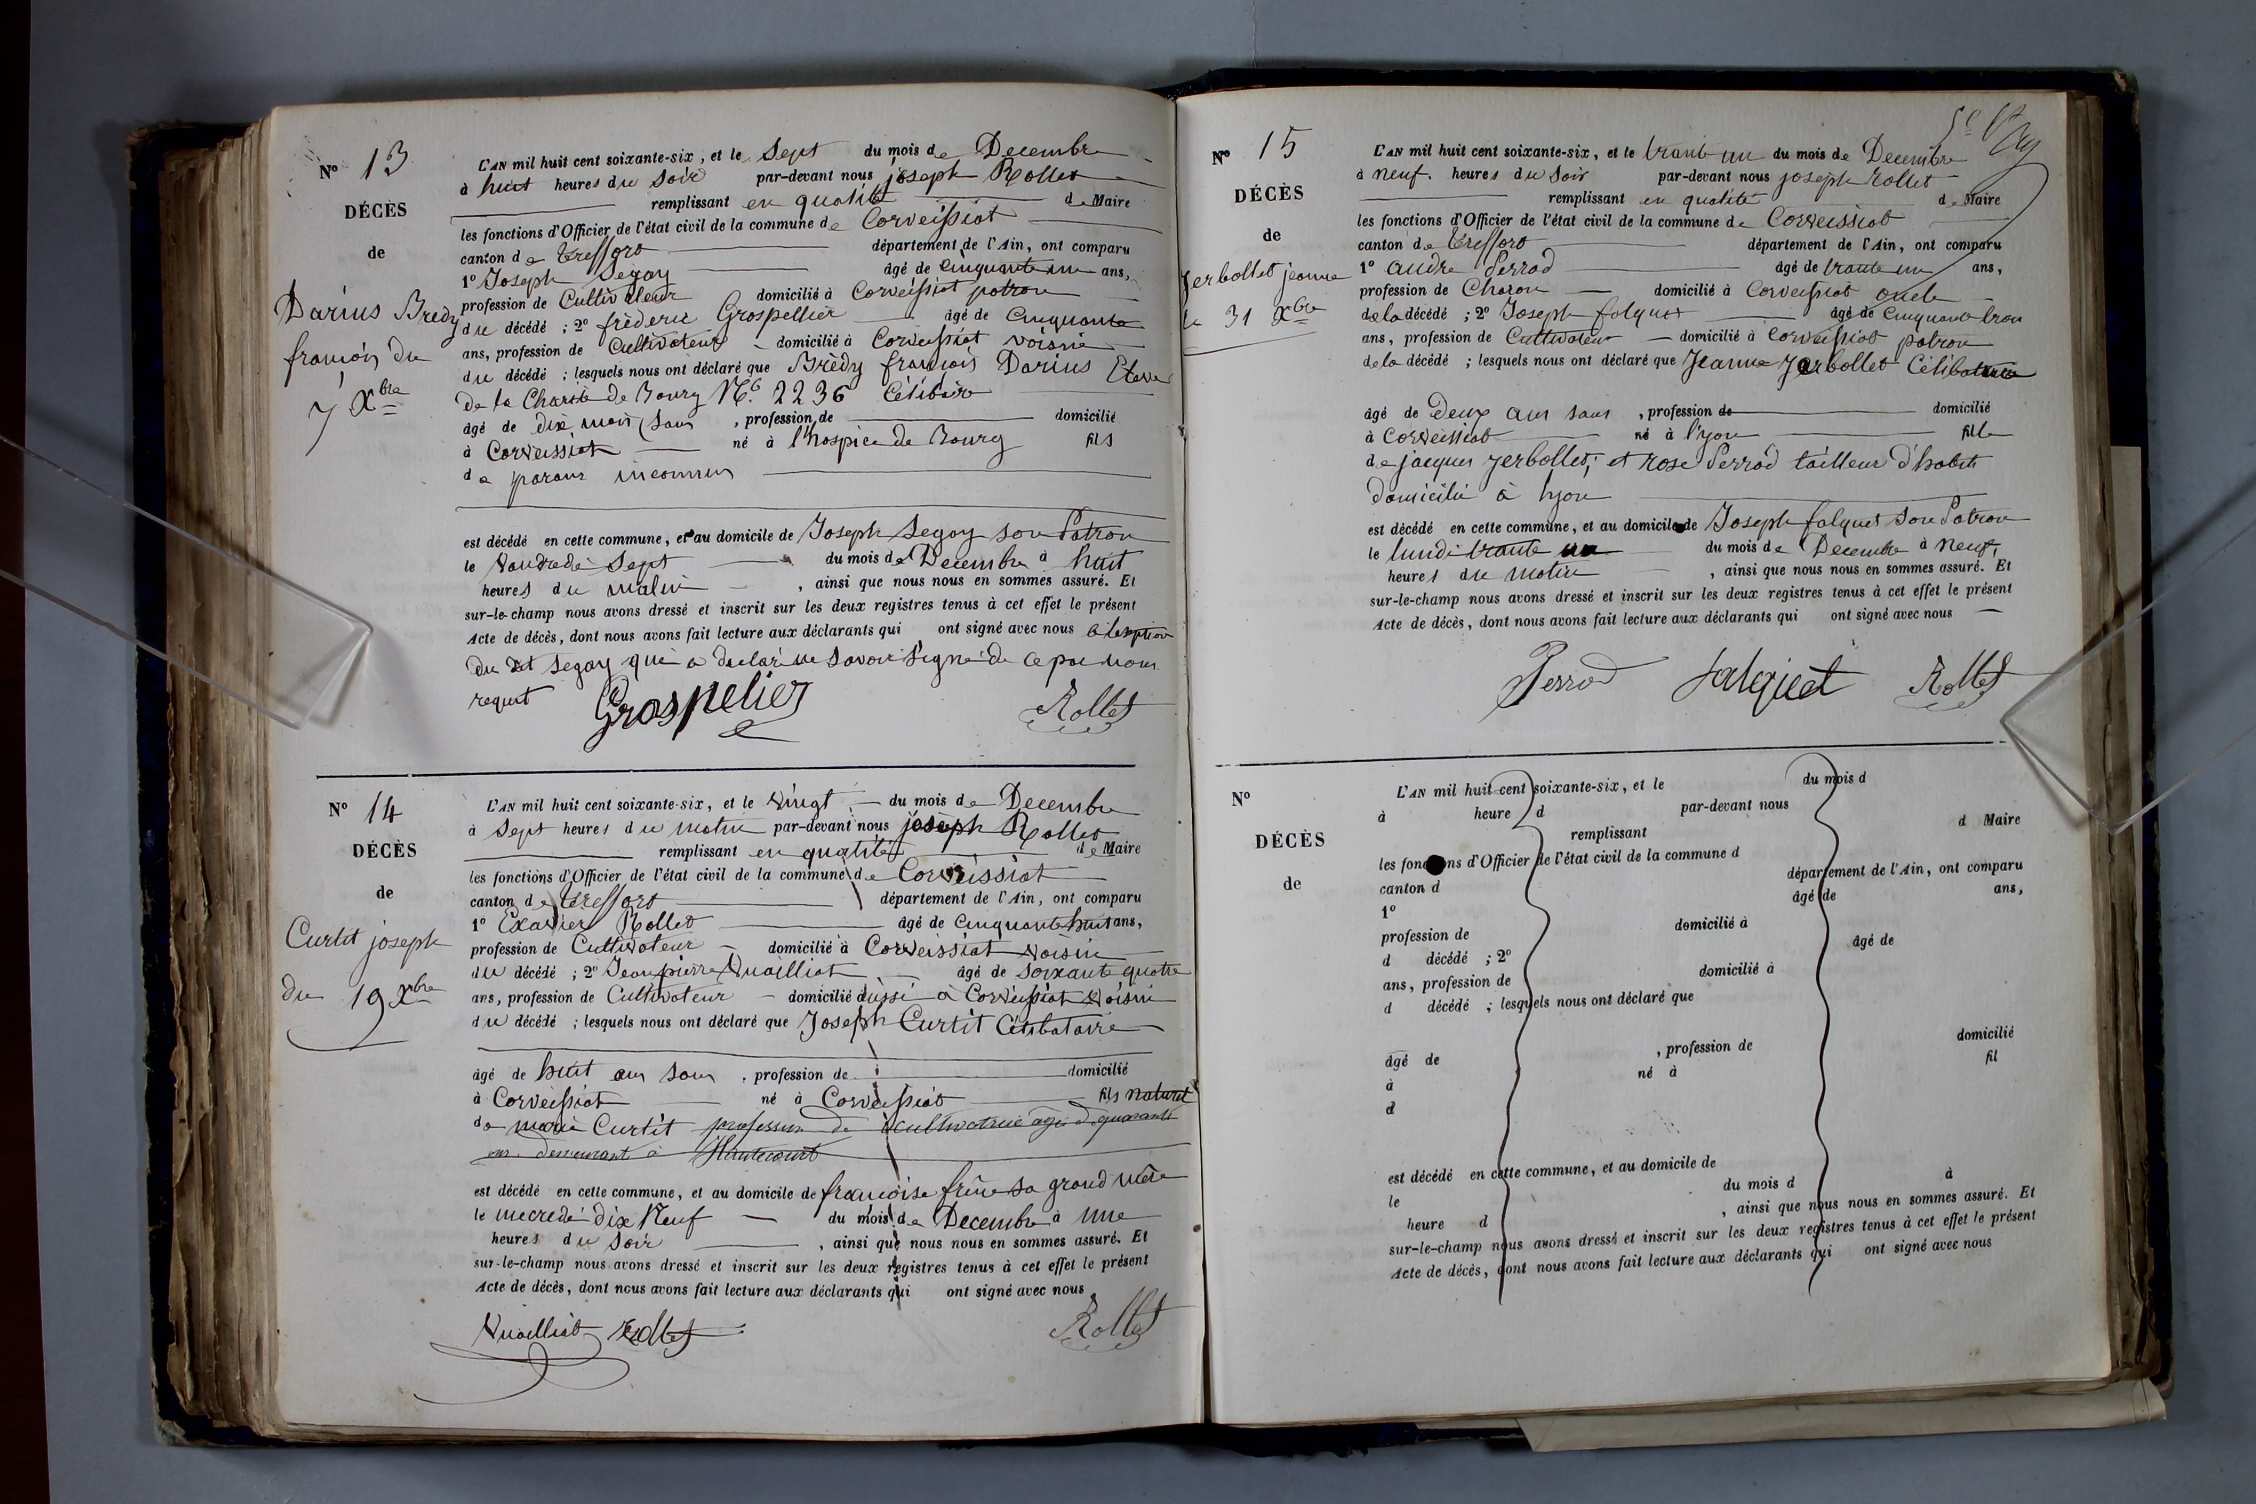 N° 13
DÉCÈS
de
Darius Bredy
françois du
7 Xbre
L'AN mil huit cent soixante-six, et le Sept du mois de Decembre
à huit heures du Soir par-devant nous joseph Rollet
remplissant en qualité de Maire
les fonctions d'Officier de l'état civil de la commune de Corveissiat
canton de Treffort département de l'Ain, ont comparu
1° Joseph Segoy âgé de Cinquante un ans,
profession de Cultivateur domicilié à Corveissiat patron
du décédé ; 2° frèderic Grospellier âgé de Cinquante
ans, profession de Cultivateur domicilié à Corveissiat voisin
du décédé ; lesquels nous ont déclaré que Brèdy françois Darius Eleve
De la Charité de Bourg N° 2236 Célibaire
âgé de dix mois sans , profession de domicilié
à Corveissiat né à l'hospice de Bourg fils
de parans inconnus
est décédé en cette commune, et au domicile de Joseph Segoy son Patron
le Vandredi Sept du mois de Decembre à huit
heures du matin , ainsi que nous nous en sommes assuré. Et
sur-le-champ nous avons dressé et inscrit sur les deux registres tenus à cet effet le présent
Acte de décès, dont nous avons fait lecture aux déclarants qui ont signé avec nous
du dit Segoy qui a declaré ne savoir signé de ce par nous
requit Grospelier Rollet
N° 14
DÉCÈS
de
Curtit joseph
du 19 Xbre
L'AN mil huit cent soixante-six, et le Vingt du mois de Decembre
à Sept heures du matin par-devant nous joseph Rollet
remplissant en qualité de Maire
les fonctions d'Officier de l'état civil de la commune de Corveissiat
canton de Treffort département de l'Ain, ont comparu
1° Exavier Rollet âgé de Cinquante huit ans,
profession de Cultivateur domicilié à Corveissiat voisin
du décédé ; 2° Jean pierre Vuailliat âgé de Soixante quatre
ans, profession de Cultivateur domicilié aussi à Corveissiat voisin
du décédé ; lesquels nous ont déclaré que Joseph Curtit Célibataire
âgé de huit ans sans , profession de domicilié
à Corveissiat né à Corveissiat fils naturel
de marie Curtit profession de cultivatrice agée de quarante
ans demeurant à Hautecourt
est décédé en cette commune, et au domicile de françoise frêne sa grand mère
le mecredi dix Neuf du mois de Decembre à une
heures du Soir , ainsi que nous nous en sommes assuré. Et
sur-le-champ nous avons dressé et inscrit sur les deux registres tenus à cet effet le présent
Acte de décès, dont nous avons fait lecture aux déclarants qui ont signé avec nous
Vuailliat Rollet Rollet
N° 15
DÉCÈS
de
Jerbollet jeanne
le 31 Xbre
L'AN mil huit cent soixante-six, et le trante un du mois de Decembre
à neuf. heures du Soir par-devant nous joseph Rollet
remplissant en qualité de Maire
les fonctions d'Officier de l'état civil de la commune de Corveissiat
canton de Treffort département de l'Ain, ont comparu
1° andre Perrod âgé de trante un ans,
profession de Charon domicilié à Corveissiat oncle
de la décédé ; 2° Joseph falquet âgé de Cinquante troi
ans, profession de Cultivateur domicilié à Corveissiat patron
de la décédé ; lesquels nous ont déclaré que Jeanne Jerbollet Célibataire
âgé de Deux ans sans , profession de domicilié
à Corveissiat né à lyon fille
de jacques Jerbollet, et rose Perrod tailleur d'habits
domicilié à lyon
est décédé en cette commune, et au domicile de Joseph falquet son Patron
le lundi trante un du mois de Decembre à neuf,
heures du matin , ainsi que nous nous en sommes assuré. Et
sur-le-champ nous avons dressé et inscrit sur les deux registres tenus à cet effet le présent
Acte de décès, dont nous avons fait lecture aux déclarants qui ont signé avec nous
Perrod falquet Rollet
N°
DÉCÈS
de
L'AN mil huit cent soixante-six, et le du mois d
à heure d par-devant nous
remplissant d Maire
les fonctions d'Officier de l'état civil de la commune d
canton d département de l'Ain, ont comparu
1° âgé de ans,
profession de domicilié à
d décédé ; 2° âgé de
ans, profession de domicilié à
d décédé ; lesquels nous ont déclaré que
âgé de , profession de domicilié
à né à fil
d
est décédé en cette commune, et au domicile de
le du mois d à
heure d , ainsi que nous nous en sommes assuré. Et
sur-le-champ nous avons dressé et inscrit sur les deux registres tenus à cet effet le présent
Acte de décès, dont nous avons fait lecture aux déclarants qui ont signé avec nous